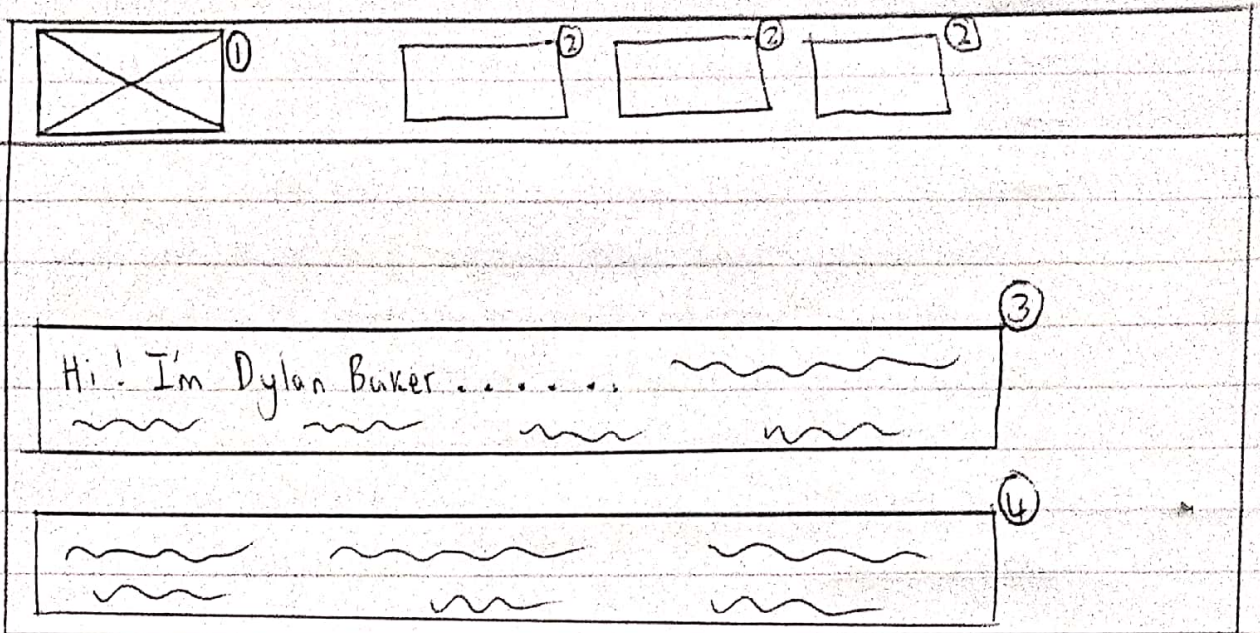 ① ② ② ②
③
Hi! I'm Dylan Baker . . . . . .
④